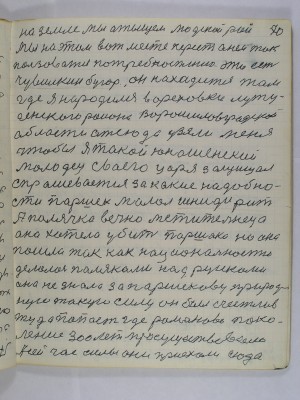 80
на земле мы отыщем людской рай
мы на том вот месте крест а не так
ползовати потребностию. Это ест
Чувилкин бугор, он находится там
где я народился в ореховки луту-
генского района Ворошиловградской
области отсюда узяли меня
чтобы я такой юношенский
молодец своего царя защищал
спрашевается за какие надобно-
сти паршек малол
А полячка вечно метителница
она хотела убить паршака но она
пошла так как националности
делалося поляками над рускими
она не знала за паршекову природ
ную такую силу он был счастлив
туда попаст где романово поко-
ление 300 лет просуществовало
час силы они приехали сюда